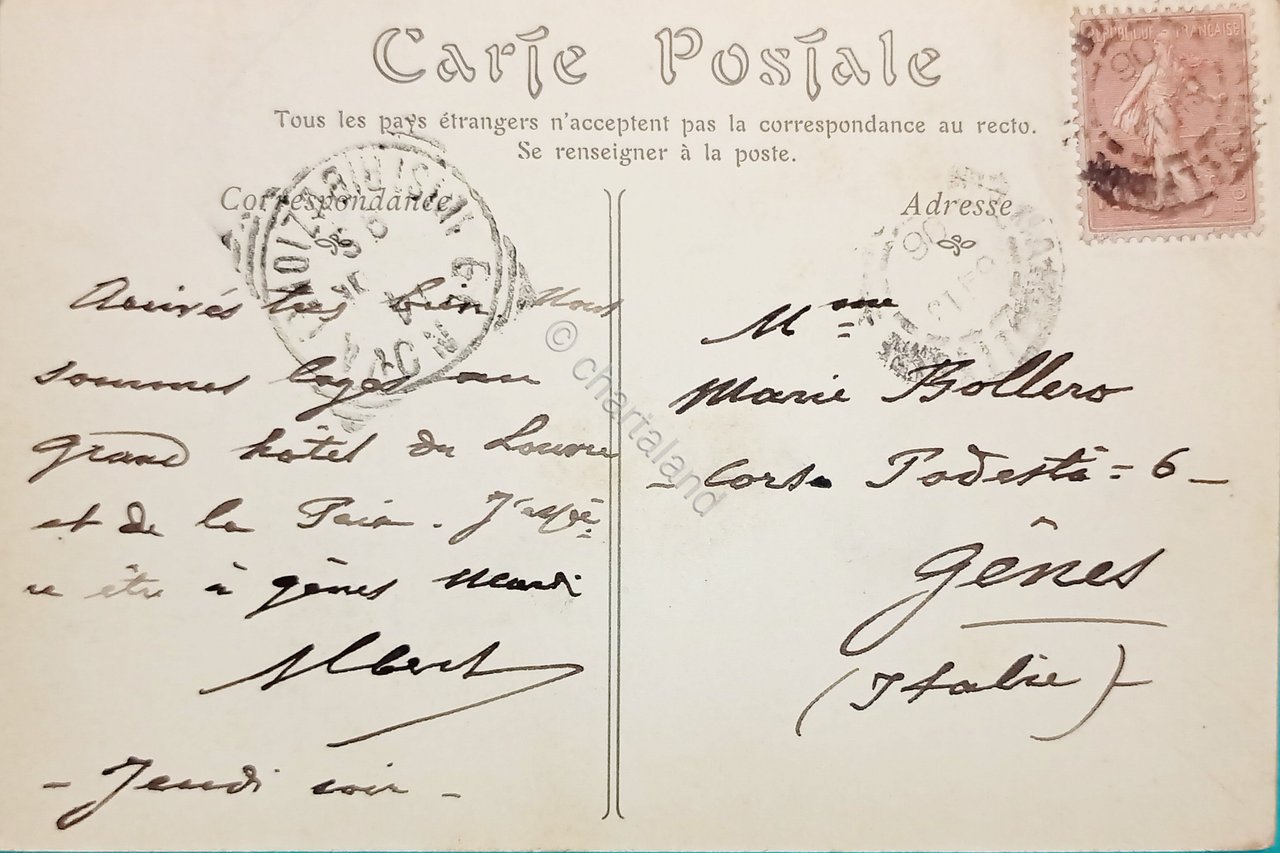 Carte Postale
Tous les pays étrangers n'acceptent pas la correspondance au recto.
Se renseigner à la poste.
Correspondance
Adresse
REPUBLIQUE FRANÇAISE
Arrivés très bien Nous
sommes logés au
Grand hôtel du Louvre
et de la Paix. J'espè=
re être à gênes Mardi
Albert
- Jeudi soir -
Mme
Marie Bollero
- Corso Podestà = 6 -
Gênes
(Italie)
© chartaland